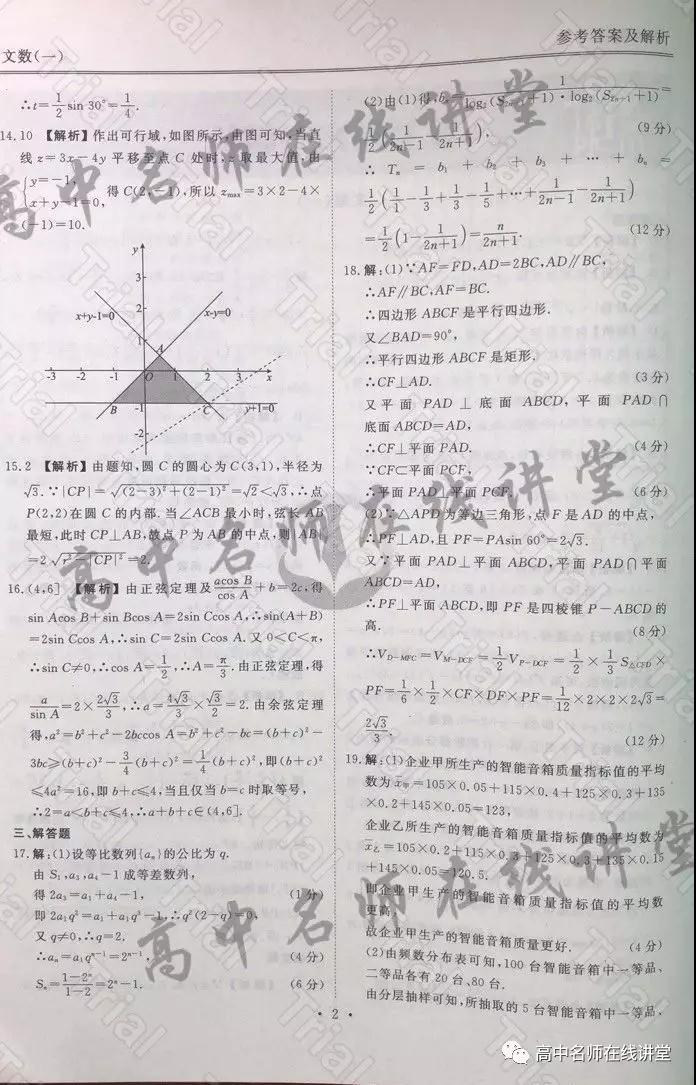 文数(一)
参考答案及解析
∴t=1/2 sin 30°=1/4.
14.10 【解析】作出可行域,如图所示,由图可知,当直
线 z=3x-4y 平移至点 C 处时,z 取最大值,由
{y=-1,
x+y-1=0,
得C(2,-1),所以 zmax=3×2-4×
(-1)=10.
y
3
2
x+y-1=0
x-y=0
1
A
-3 -2 -1 O 1 2 3 x
B -1 C y+1=0
-2
15.2 【解析】由题知,圆 C 的圆心为 C(3,1),半径为
√3.∵|CP|=√((2-3)²+(2-1)²)=√2<√3,∴点
P(2,2)在圆 C 的内部.当∠ACB 最小时,弦长 AB
最短,此时 CP⊥AB,故点 P 为 AB 的中点,则|AB|
=2√(r²-|CP|²)=2.
16.(4,6] 【解析】由正弦定理及 acos B/cos A+b=2c,得
sin Acos B+sin Bcos A=2sin Ccos A,∴sin(A+B)
=2sin Ccos A,∴sin C=2sin Ccos A.又 0<C<π,
∴sin C≠0,∴cos A=1/2,∴A=π/3.由正弦定理,得
a/sin A=2×2√3/3,∴a=4√3/3×√3/2=2.由余弦定理
得,a²=b²+c²-2bccos A=b²+c²-bc=(b+c)²-
3bc≥(b+c)²-3/4(b+c)²=1/4(b+c)²,即(b+c)²
≤4a²=16,即 b+c≤4,当且仅当 b=c 时取等号,
∴2=a<b+c≤4,∴a+b+c∈(4,6].
三、解答题
17.解:(1)设等比数列{aₙ}的公比为 q.
由 S₁,a₃,a₄-1 成等差数列,
得 2a₃=a₁+a₄-1, (1分)
即 2a₁q²=a₁+a₁q³-1,∴q²(2-q)=0,
又 q≠0,∴q=2,
∴aₙ=a₁qⁿ⁻¹=2ⁿ⁻¹, (4分)
Sₙ=(1-2ⁿ)/(1-2)=2ⁿ-1. (6分)
(2)由(1)得,bₙ=1/(log₂(S₂ₙ+1)·log₂(S₂ₙ₋₁+1))=
1/2(1/(2n-1)-1/(2n+1)), (9分)
∴ Tₙ = b₁ + b₂ + b₃ + ⋯ + bₙ =
1/2(1-1/3+1/3-1/5+⋯+1/(2n-1)-1/(2n+1))
=1/2(1-1/(2n+1))=n/(2n+1). (12分)
18.解:(1)∵AF=FD,AD=2BC,AD∥BC,
∴AF∥BC,AF=BC.
∴四边形 ABCF 是平行四边形.
又∠BAD=90°,
∴平行四边形 ABCF 是矩形,
∴CF⊥AD. (3分)
又平面 PAD⊥底面 ABCD,平面 PAD∩
底面 ABCD=AD,
∴CF⊥平面 PAD. (4分)
∵CF⊂平面 PCF,
∴平面 PAD⊥平面 PCF. (6分)
(2)∵△APD 为等边三角形,点 F 是 AD 的中点,
∴PF⊥AD,且 PF=PAsin 60°=2√3.
又∵平面 PAD⊥平面 ABCD,平面 PAD∩平面
ABCD=AD,
∴PF⊥平面 ABCD,即 PF 是四棱锥 P-ABCD 的
高. (8分)
∴V_D-MFC=V_M-DCF=1/2V_P-DCF=1/2×1/3S△CFD×
PF=1/6×1/2×CF×DF×PF=1/12×2×2×2√3=
2√3/3. (12分)
19.解:(1)企业甲所生产的智能音箱质量指标值的平均
数为 x̄甲=105×0.05+115×0.4+125×0.3+135
×0.2+145×0.05=123,
企业乙所生产的智能音箱质量指标值的平均数为
x̄乙=105×0.2+115×0.3+125×0.3+135×0.15
+145×0.05=120.5.
即企业甲生产的智能音箱质量指标值的平均数
更高,
故企业甲生产的智能音箱质量更好. (4分)
(2)由频数分布表可知,100 台智能音箱中一等品、
二等品各有 20 台、80 台.
由分层抽样可知,所抽取的 5 台智能音箱中一等品、
· 2 ·
高中名师在线讲堂
高中名师在线讲堂
高中名师在线讲堂
Trial
高中名师在线讲堂